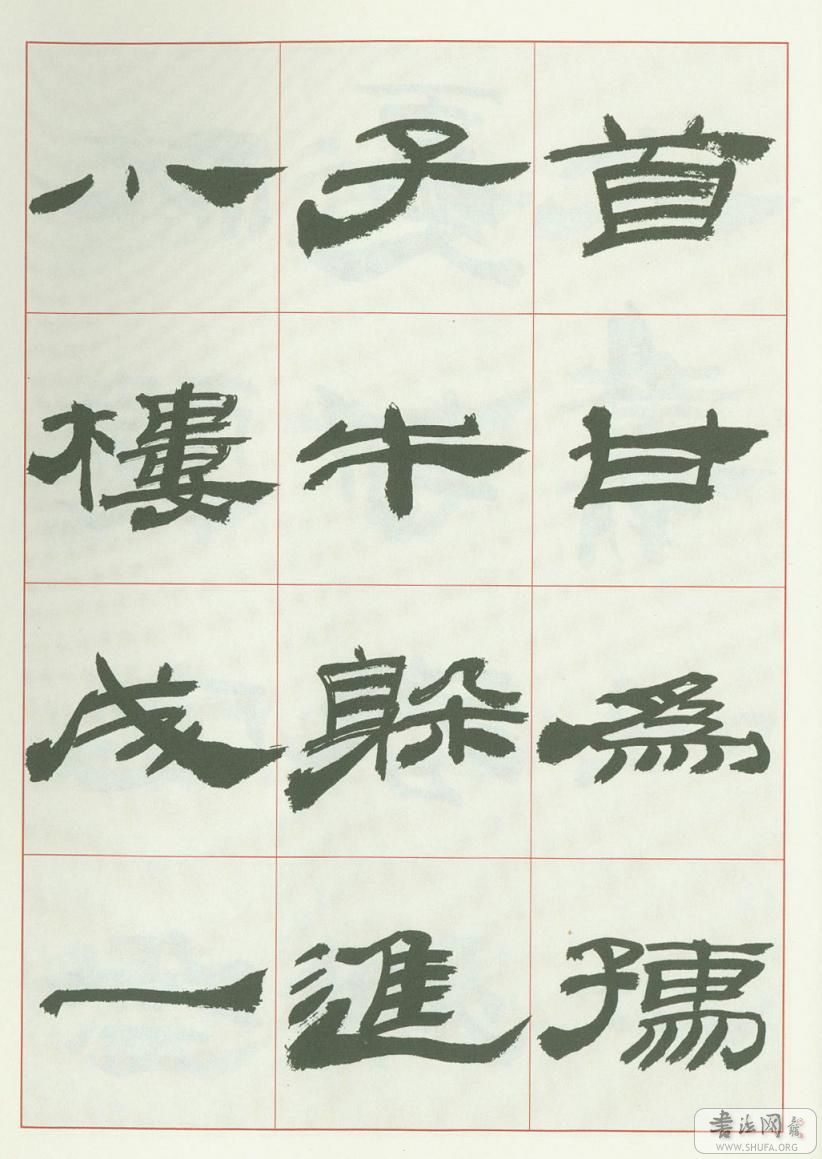 首甘為孺
子牛躲進
小樓成一
書法网
WWW.SHUFA.ORG